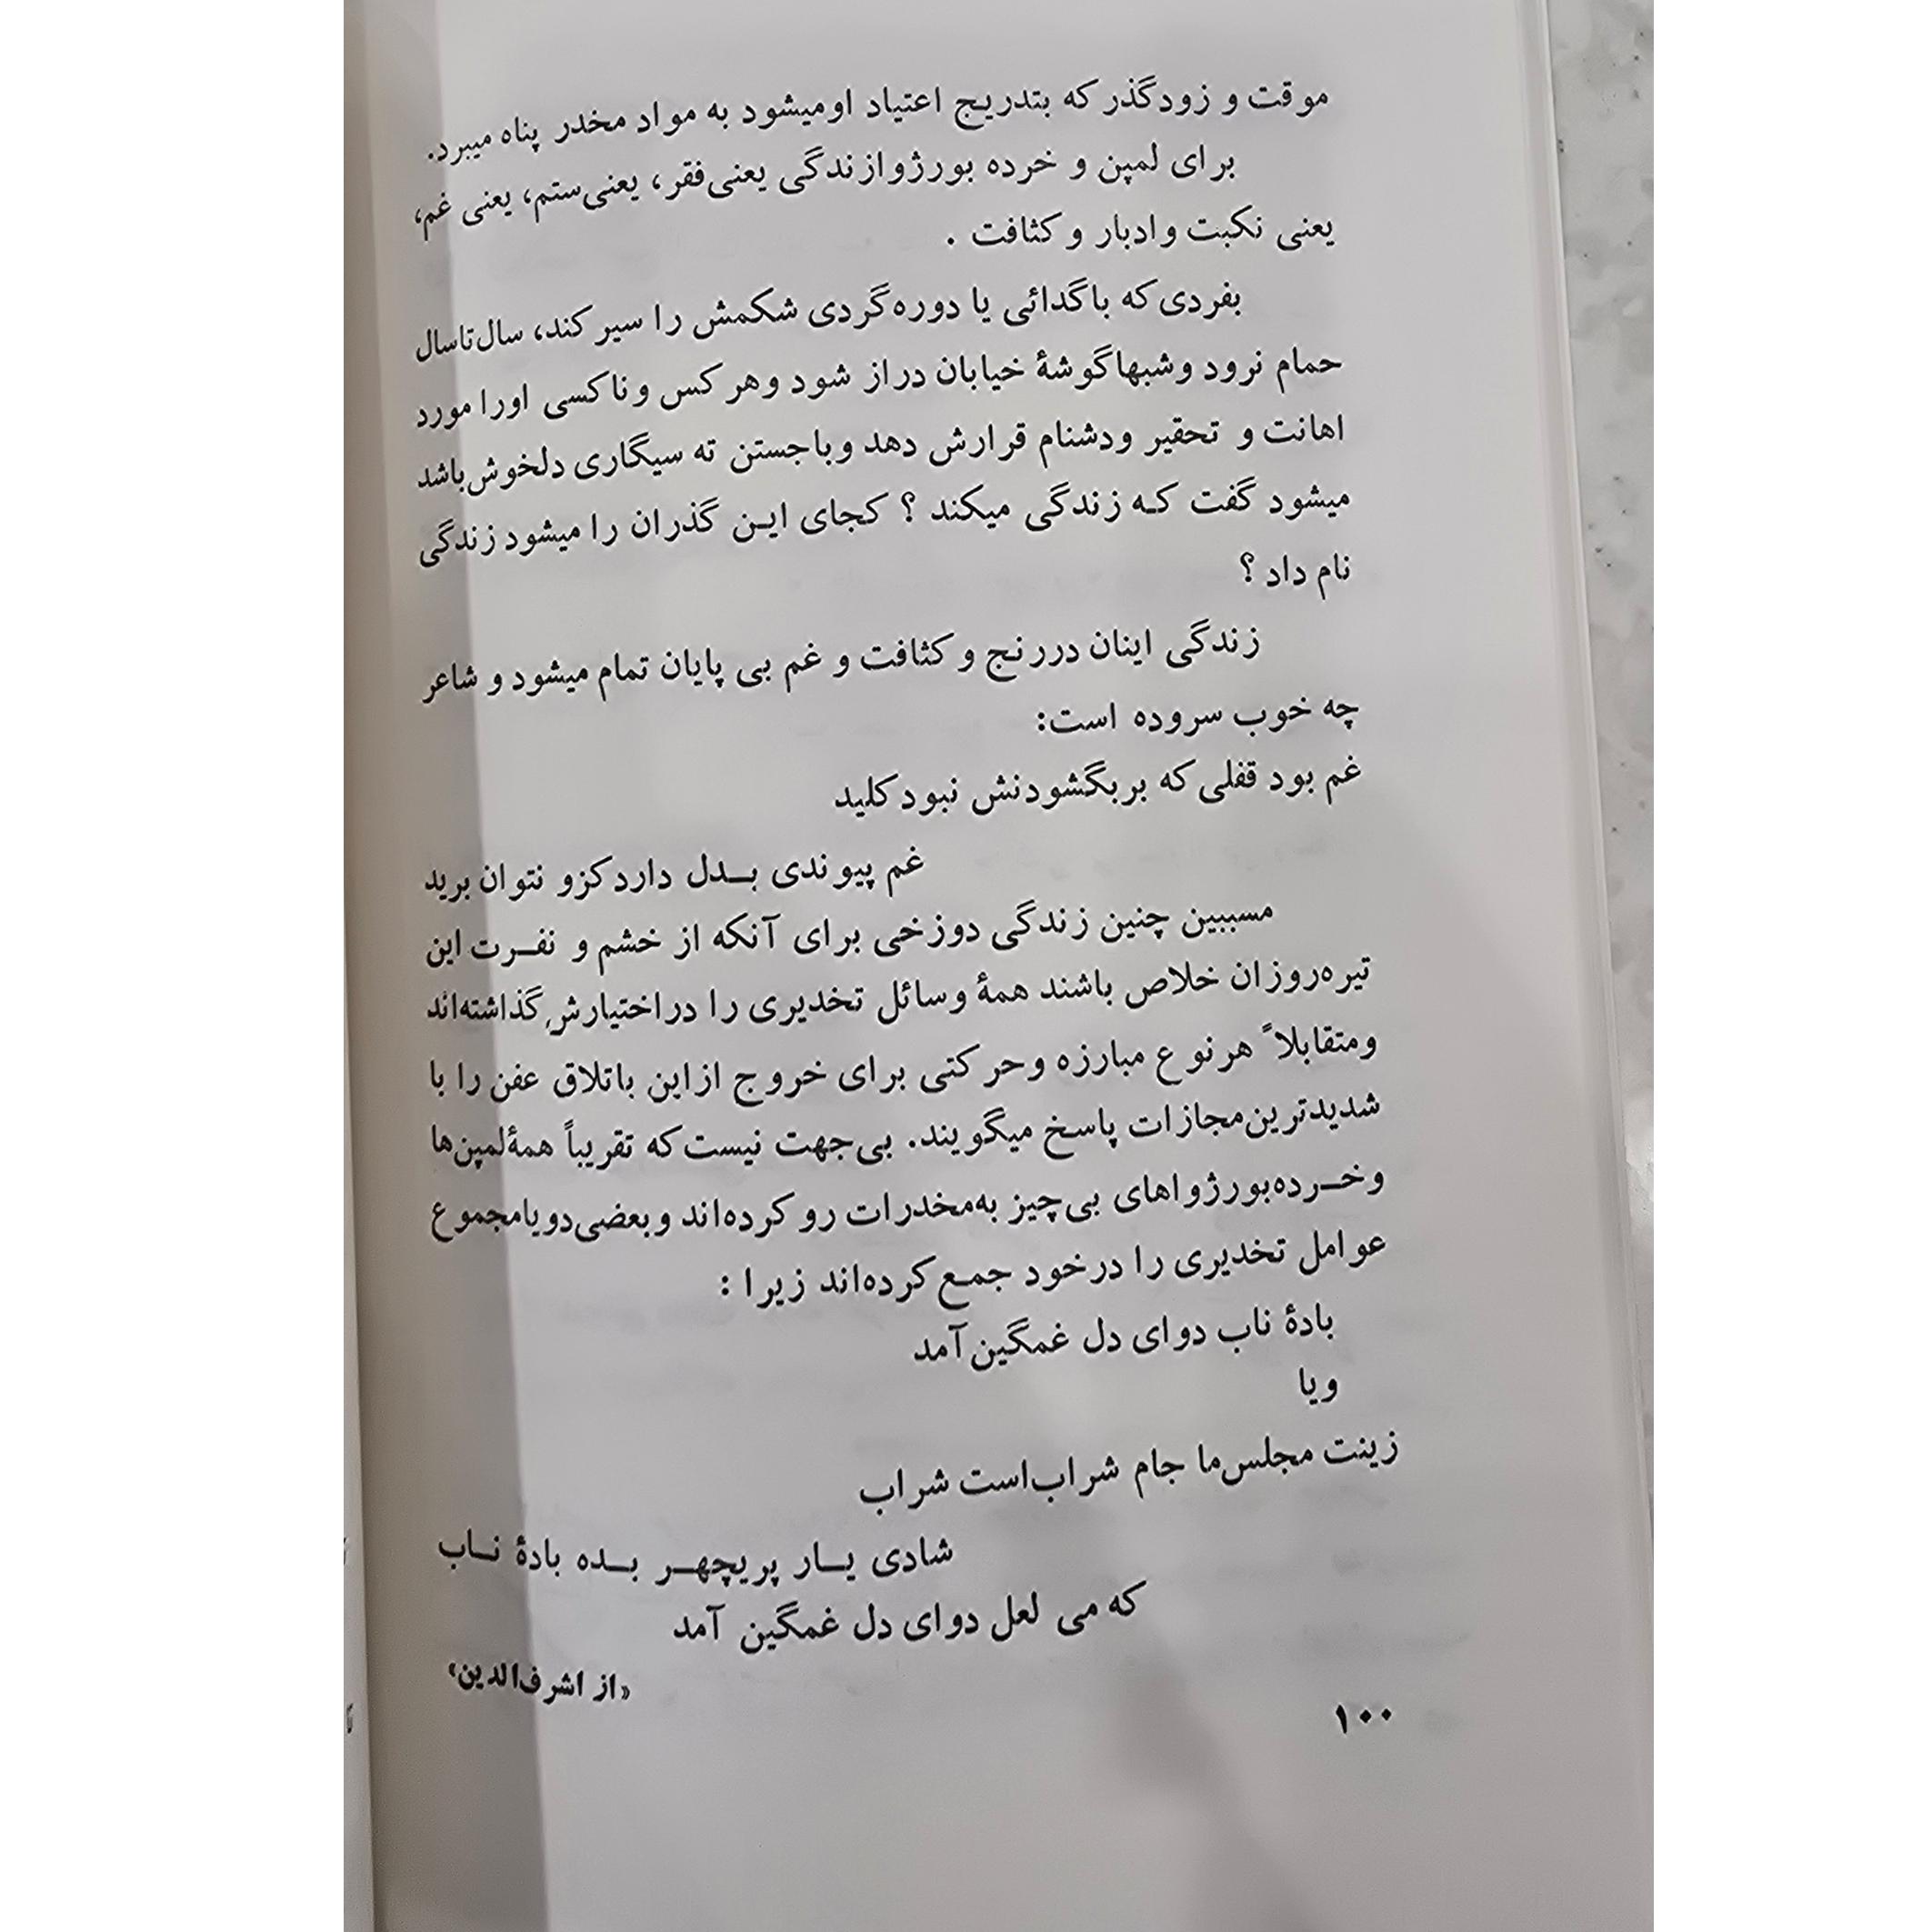 موقت و زودگذر که بتدریج اعتیاد اومیشود به مواد مخدر پناه میبرد.
برای لمپن و خرده بورژوازندگی یعنی‌فقر، یعنی‌ستم، یعنی غم،
یعنی نکبت وادبار و کثافت .
بفردی‌که باگدائی یا دوره‌گردی شکمش را سیرکند، سال‌تاسال
حمام نرود وشبهاگوشهٔ خیابان دراز شود وهرکس وناکسی اورا مورد
اهانت و تحقیر ودشنام قرارش دهد وباجستن ته سیگاری دلخوش‌باشد
میشود گفت کـه زندگی میکند ؟ کجای ایـن گذران را میشود زندگی
نام داد ؟
زندگی اینان دررنج و کثافت و غم بی پایان تمام میشود و شاعر
چه خوب سروده است:
غم بود قفلی‌که بربگشودنش نبودکلید
غم پیوندی بـدل داردکزو نتوان برید
مسببین چنین زندگی دوزخی برای آنکه از خشم و نفـرت این
تیره‌روزان خلاص باشند همهٔ وسائل تخدیری را دراختیارش گذاشته‌اند
ومتقابلاً هرنوع مبارزه وحرکتی برای خروج ازاین باتلاق عفن را با
شدیدترین‌مجازات پاسخ میگویند. بی‌جهت نیست‌که تقریباً همهٔ‌لمپن‌ها
وخـرده‌بورژواهای بی‌چیز به‌مخدرات روکرده‌اند وبعضی‌دویامجموع
عوامل تخدیری را درخود جمـع‌کرده‌اند زیرا :
بادهٔ ناب دوای دل غمگین‌آمد
ویا
زینت مجلس‌ما جام شراب‌است شراب
شادی یـار پریچهـر بـده بادهٔ نـاب
که می لعل دوای دل غمگین آمد
«از اشرف‌الدین»
۱۰۰